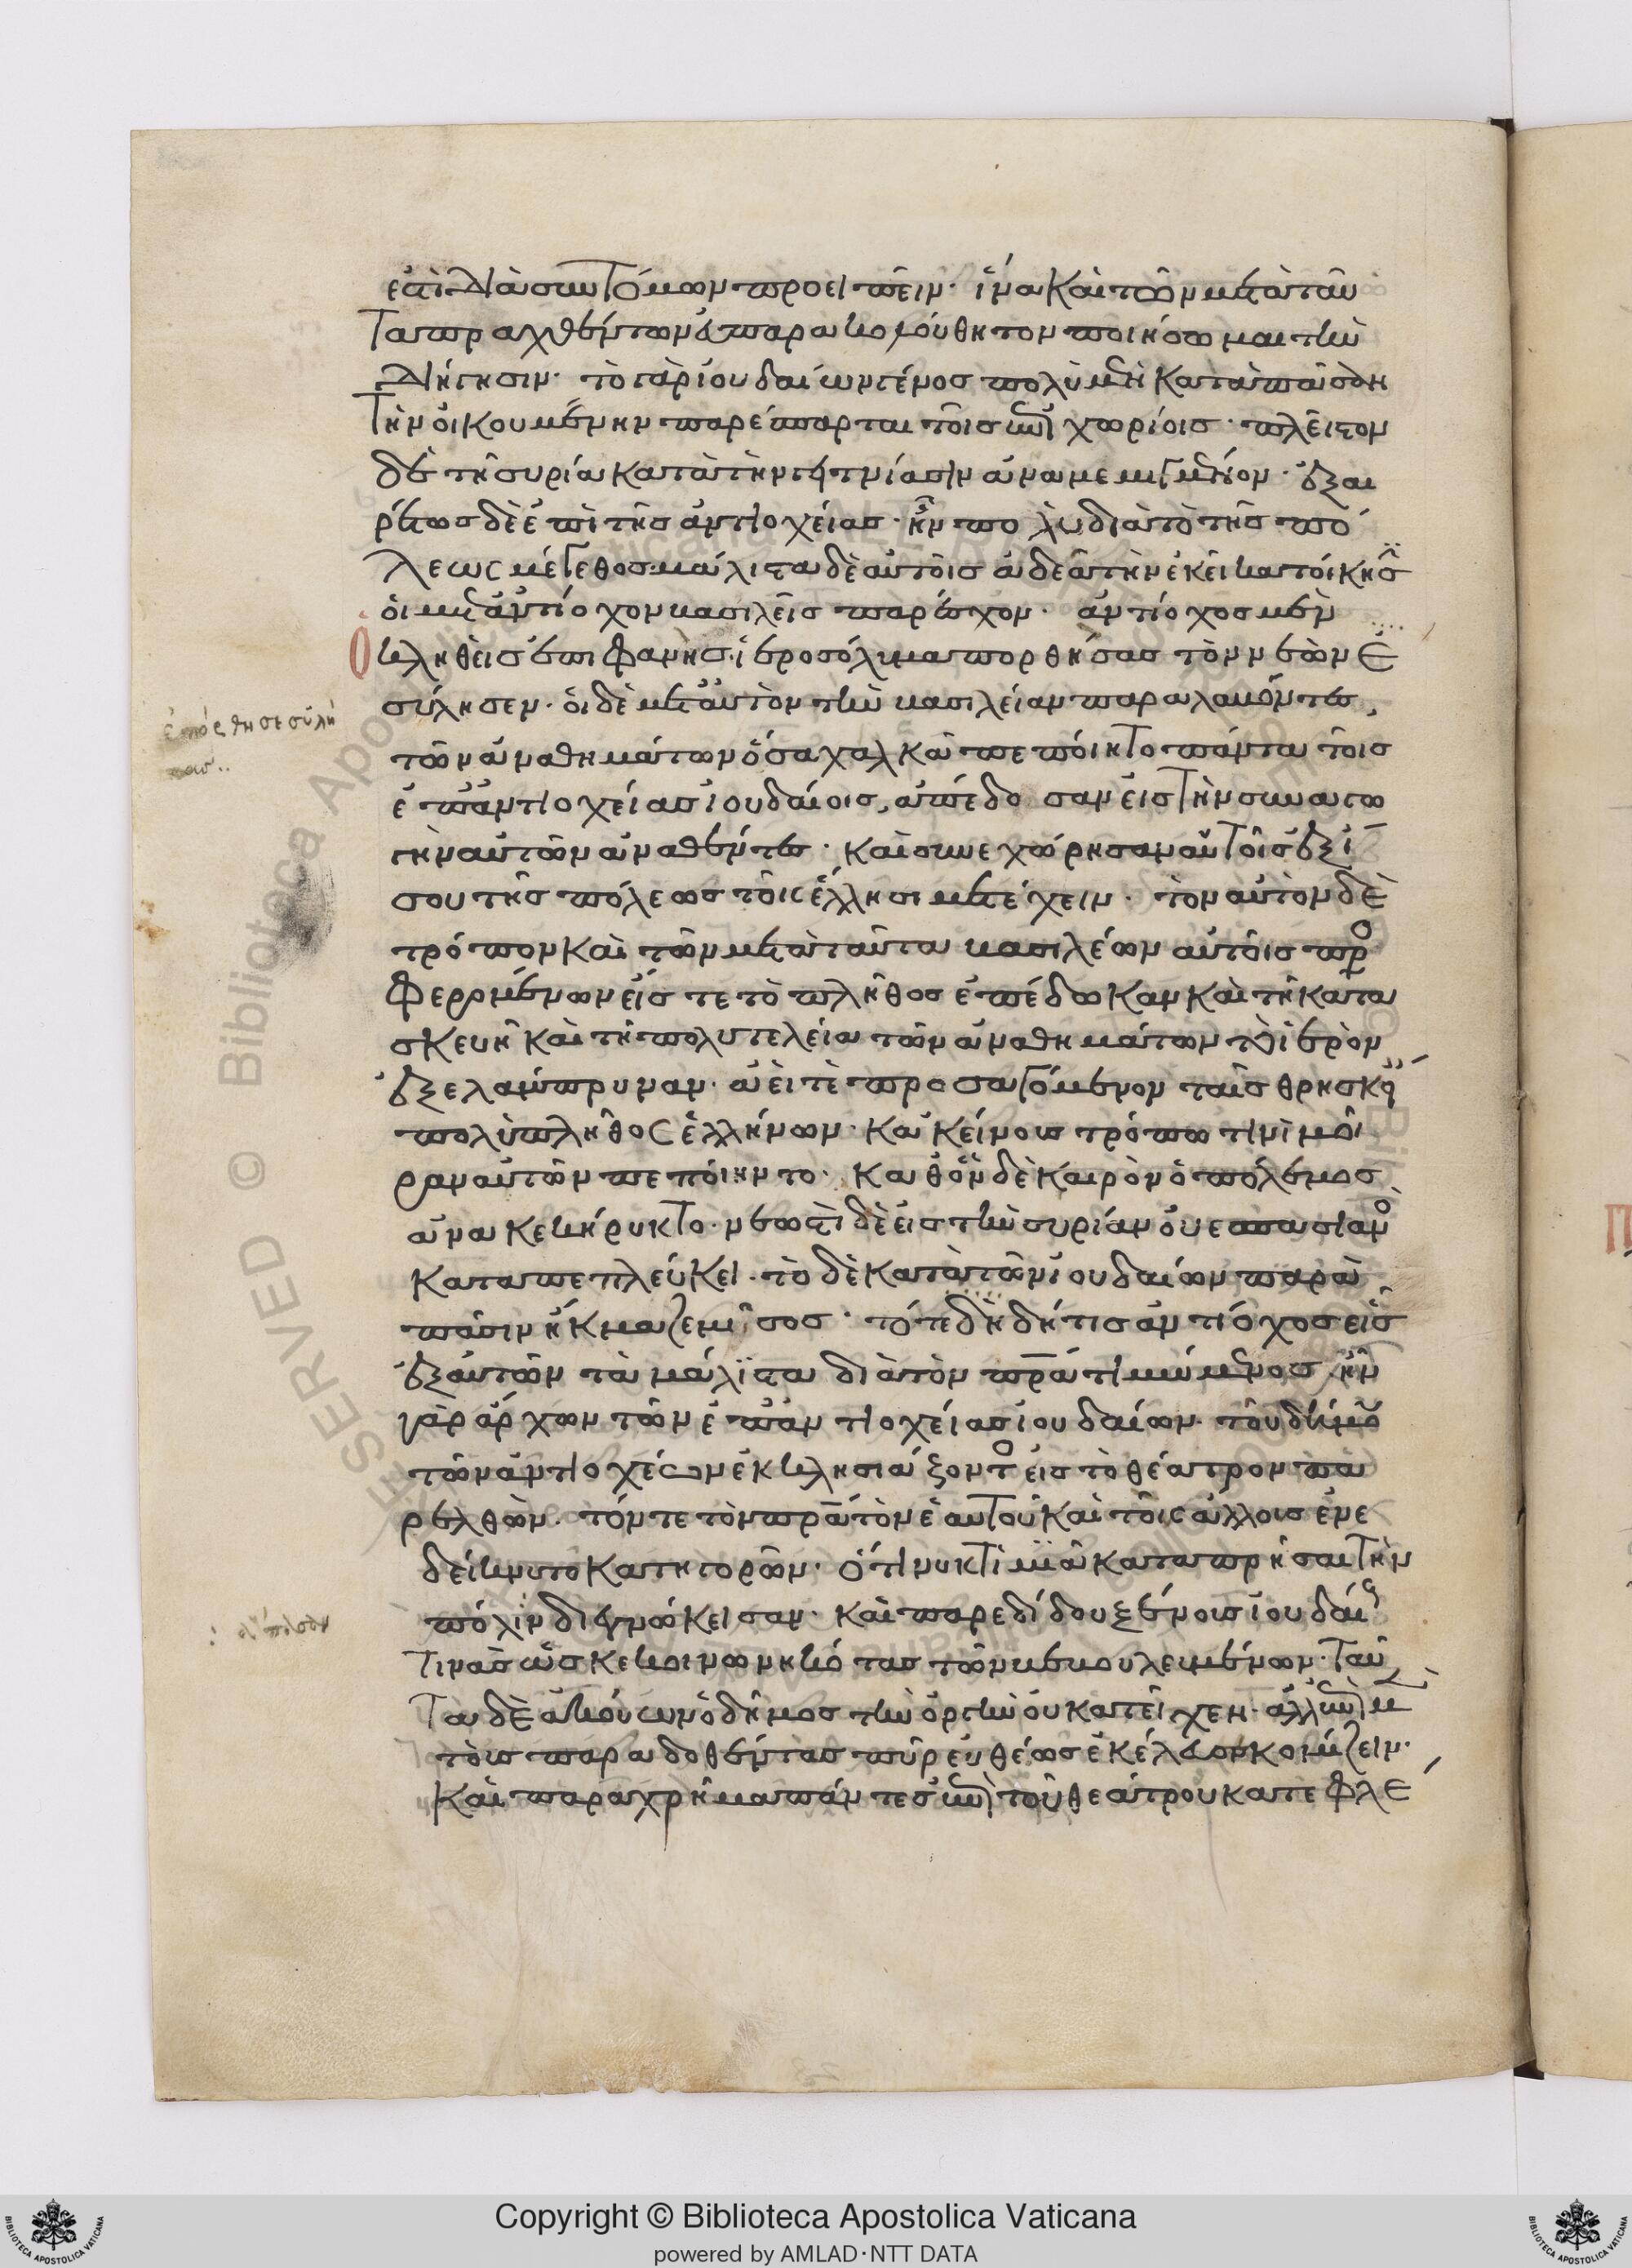 ἐστὶ διὰ συντόμων προειπεῖν· ἵνα καὶ τῶν μετὰ ταῦ
τα πραχθέντων εὐπαρακολούθητον ποιήσωμαι τὴν
διήγησιν· τὸ γὰρ ἰουδαίων γένος πολὺ μὲν κατὰ πᾶσαν
τὴν οἰκουμένην παρέσπαρται τοῖς ἐπιχωρίοις· πλεῖστον
δὲ τῇ συρίᾳ κατὰ τὴν γειτνίασιν ἀναμεμιγμένον· ἐξαι
ρέτως δὲ ἐπὶ τῆς ἀντιοχείας ἦν πολὺ διὰ τὸ τῆς πό
λεως μέγεθος· μάλιστα δὲ αὐτοῖς ἀδεᾶ τὴν ἐκεῖ κατοίκησ
οἱ μετ' ἀντίοχον βασιλεῖς παρέσχον· ἀντίοχος μὲν
ὁ κληθεὶς ἐπιφανὴς ἱεροσόλυμα πορθήσας τὸν νεὼν ἐ
σύλησεν· οἱ δὲ μετ' αὐτὸν τὴν βασιλείαν παραλαβόντες,
τῶν ἀναθημάτων ὅσα χαλκᾶ πεποίητο πάντα τοῖς
ἐπ' ἀντιοχείας ἰουδαίοις, ἀπέδοσαν εἰς τὴν συναγω
γὴν αὐτῶν ἀναθέντες· καὶ συνεχώρησαν αὐτοῖς ἐξ ἴ
σου τῆς πόλεως τοῖς ἕλλησι μετέχειν· τὸν αὐτὸν δὲ
τρόπον καὶ τῶν μετὰ ταῦτα βασιλέων αὐτοῖς προσ
φερομένων εἴς τε τὸ πλῆθος ἐπέδωκαν καὶ τῇ κατα
σκευῇ καὶ τῇ πολυτελείᾳ τῶν ἀναθημάτων τὸ ἱερὸν
ἐξελάμπρυναν· ἀεί τε προσαγόμενοι ταῖς θρησκείαις
πολὺ πλῆθος ἑλλήνων· κἀκείνους τρόπῳ τινὶ μοῖ
ραν αὐτῶν πεποίηντο· καθ' ὃν δὲ καιρὸν ὁ πόλεμος
ἀνακεκήρυκτο· νεωστὶ δὲ εἰς τὴν συρίαν οὐεσπασιανὸς
καταπεπλεύκει· τὸ δὲ κατὰ τῶν ἰουδαίων παρὰ
πᾶσιν ἤκμαζε μῖσος· τότε δὴ δή τις ἀντίοχος εἷς
ἐξ αὐτῶν τὰ μάλιστα διὰ τὸν πατέρα τιμώμενος ἦν
γὰρ ἄρχων τῶν ἐπ' ἀντιοχείας ἰουδαίων· τοῦ δήμου
τῶν ἀντιοχέων ἐκκλησιάζοντος εἰς τὸ θέατρον πα
ρελθών· τόν τε τὸν πατέρα τὸν ἑαυτοῦ καὶ τοὺς ἄλλους ἐνε
δείκνυτο κατηγορῶν· ὅτι νυκτὶ μιᾷ καταπρῆσαι τὴν
πόλιν διεγνώκεισαν· καὶ παρεδίδου ξένους ἰουδαίους
τινὰς ὡς κεκοινωνηκότας τῶν βεβουλευμένων· ταῦ
τα δὲ ἀκούων ὁ δῆμος τὴν ὀργὴν οὐ κατεῖχεν· ἀλλ' ἐπὶ μὲν
τοὺς παραδοθέντας πῦρ εὐθέως ἐκέλευον κομίζειν·
καὶ παραχρῆμα πάντες ἐπὶ τοῦ θεάτρου κατεφλέ
Copyright © Biblioteca Apostolica Vaticana
powered by AMLAD·NTT DATA